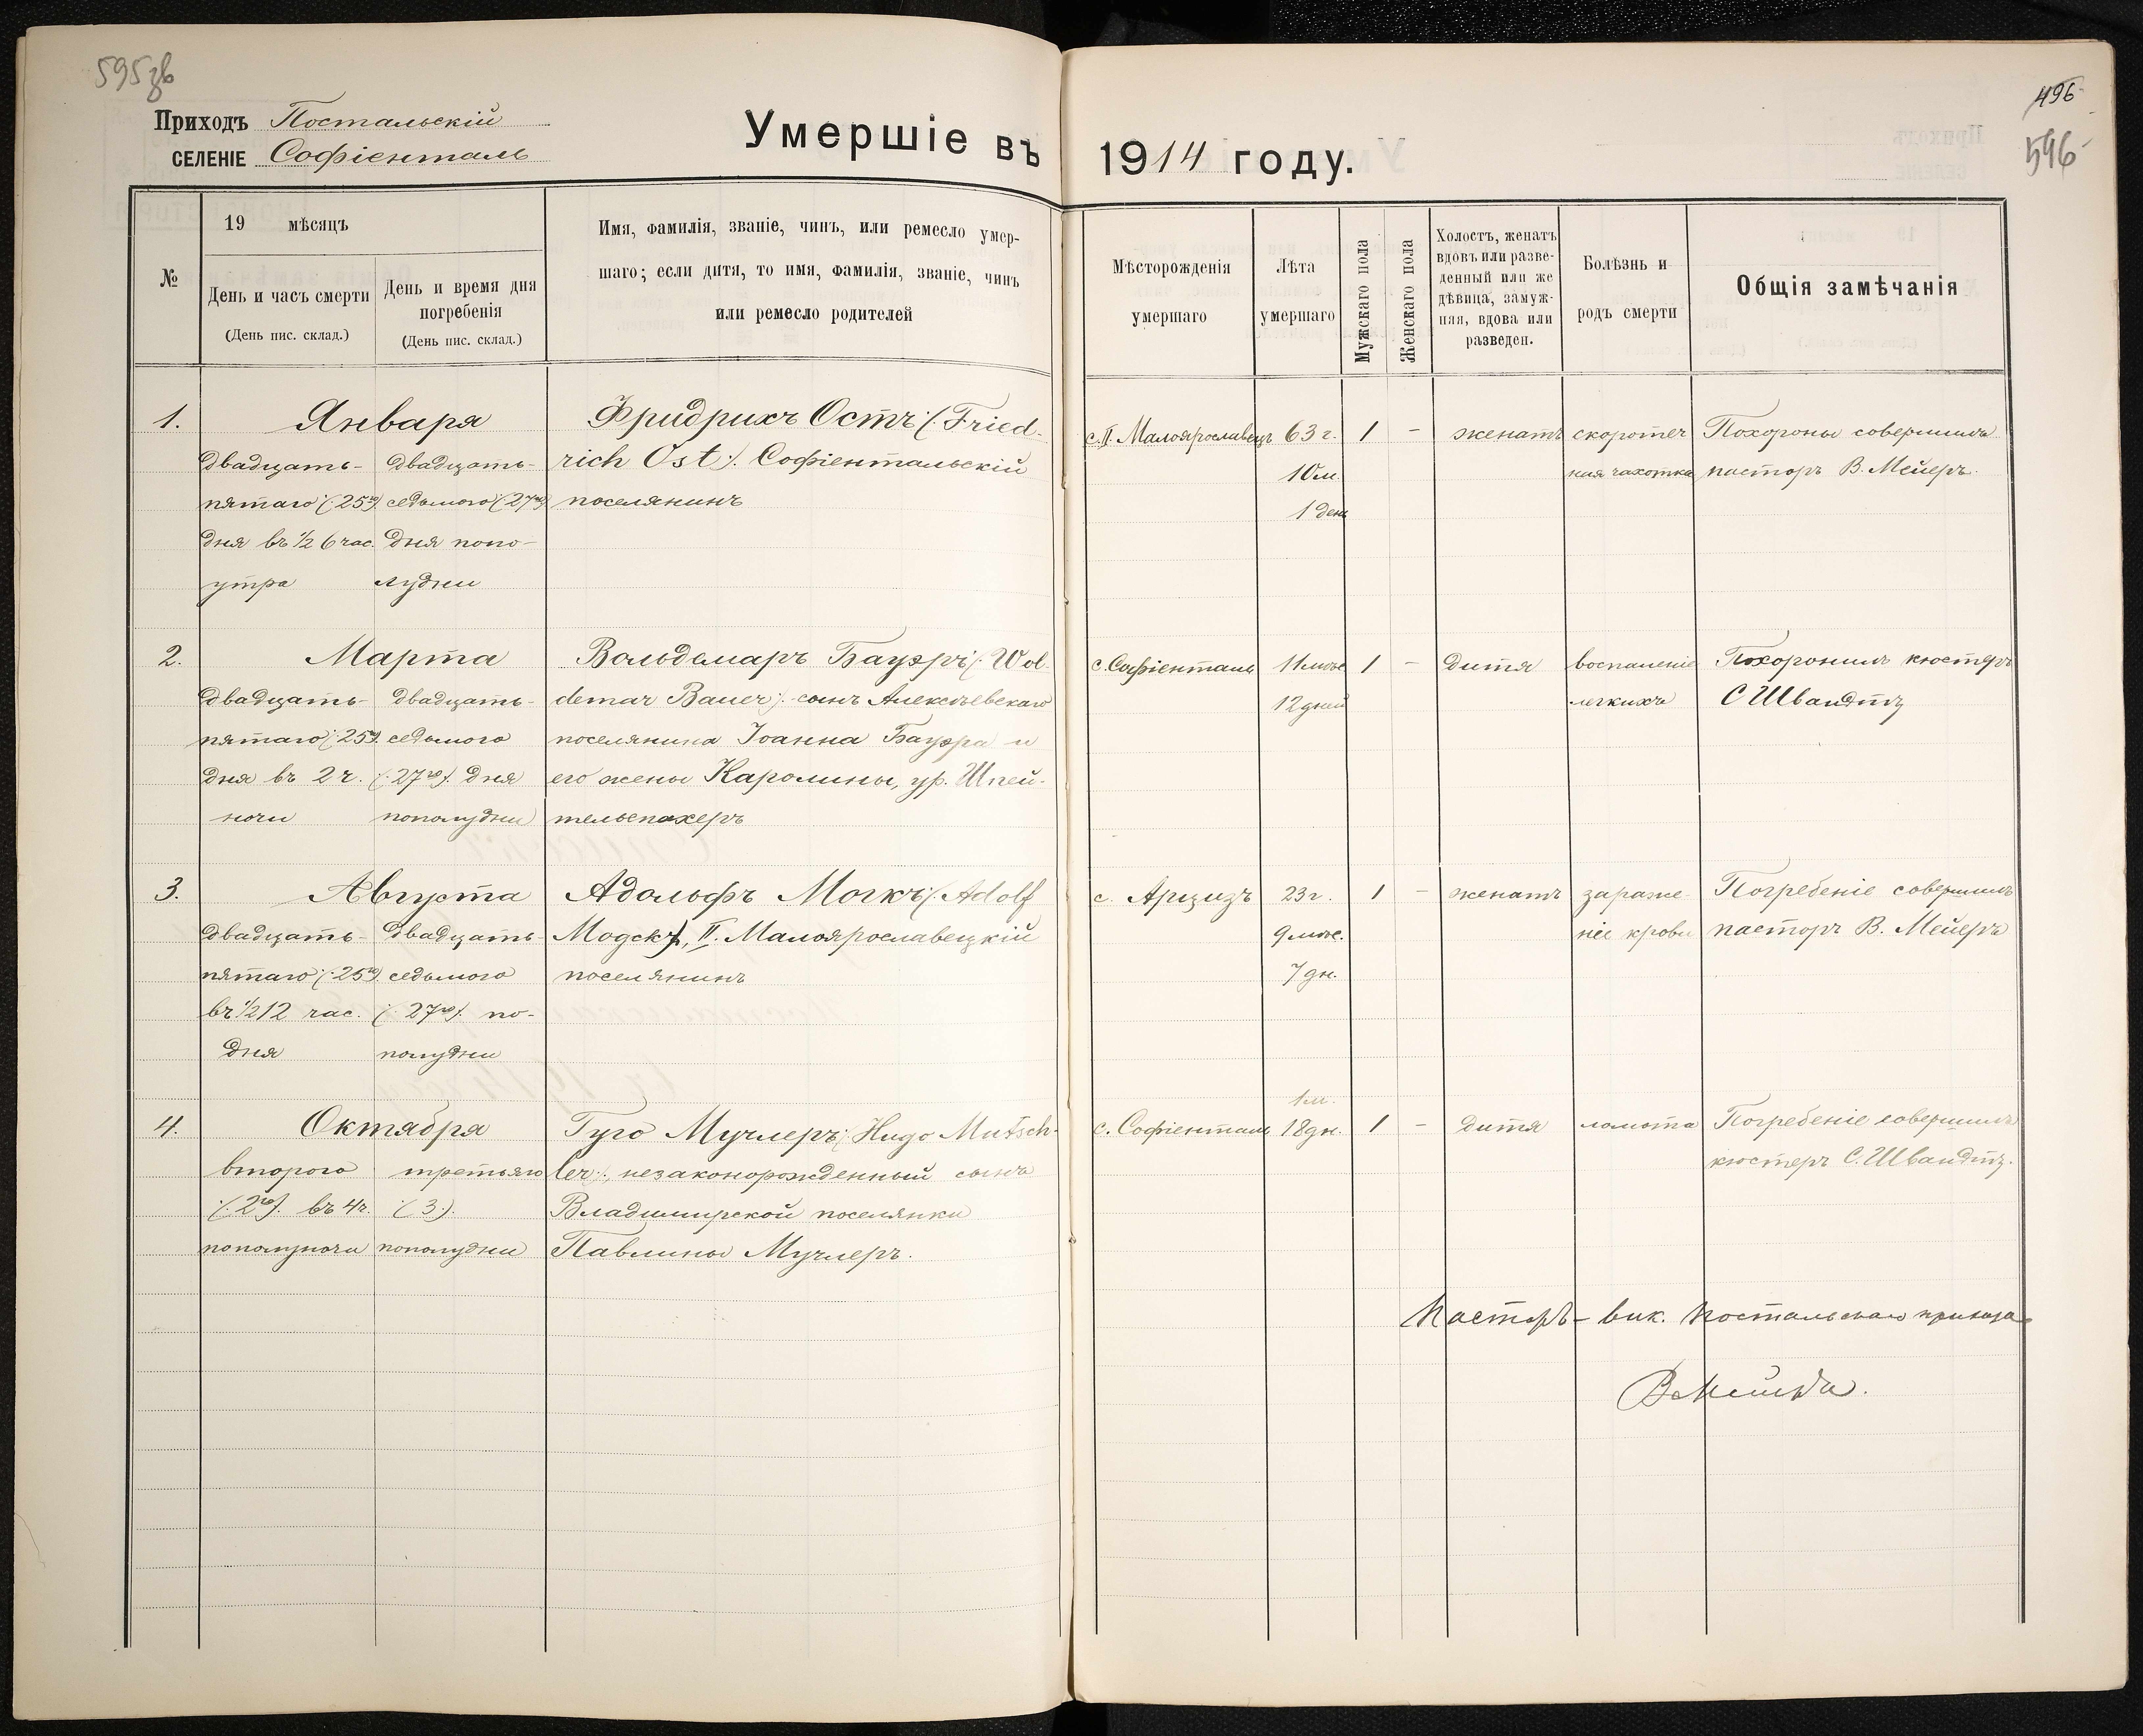 595зв
496
596
Приходъ Постальскій
селеніе Софіенталь
Умершіе въ 1914 году.
№
19 мѣсяцъ
День и часъ смерти
(День пис. склад.)
День и время дня
погребенія
(День пис. склад.)
Имя, фамилія, званіе, чинъ, или ремесло умер-
шаго; если дитя, то имя, фамилія, званіе, чинъ
или ремесло родителей
Мѣсторожденія
умершаго
Лѣта
умершаго
Мужскаго пола
Женскаго пола
Холостъ, женатъ
вдовъ или разве-
денный или же
дѣвица, замуж-
няя, вдова или
разведен.
Болѣзнь и
родъ смерти
Общія замѣчанія
1.
Января
двадцать-
пятаго (:25го:)
дня въ ½ 6 час.
утра
двадцать-
седьмого (:27го:)
дня попо-
лудни
Фридрихъ Остъ (: Fried-
rich Ost :) Софіентальскій
поселянинъ
с. II. Малоярославецъ
63 г.
10 м.
1 день
1
-
женатъ
скоротеч
ная чахотка
Похороны совершилъ
пасторъ В. Мейеръ.
2.
Марта
двадцать-
пятаго (:25го:)
дня въ 2 ч.
ночи
двадцать-
седьмого
(:27го:) дня
пополудни
Вольдемаръ Бауэръ (: Wol-
demar Bauer :) сынъ Алексѣевскаго
поселянина Іоанна Бауэра и
его жены Каролины, ур. Шпей-
тельспахеръ
с. Софіенталь
11 мѣс
12 дней
1
-
дитя
воспаленіе
легкихъ
Похоронилъ кюстеръ
С Швандтъ
3.
Августа
двадцать-
пятаго (:25го:)
въ ½ 12 час.
дня
двадцать-
седьмого
(:27го:) по-
полудни
Адольфъ Моккъ (: Adolf
Modck :), II. Малоярославецкій
поселянинъ
с. Арцизъ
23 г.
9 мѣс.
7 дн.
1
-
женатъ
зараже-
ніе крови
Погребеніе совершилъ
пасторъ В. Мейеръ
4.
Октября
второго
(:2го:) въ 4 ч.
пополуночи
третьяго
(:3:)
пополудни
Гуго Мучлеръ (: Hugo Mutsch-
ler :), незаконорожденный сынъ
Владимирской поселянки
Павлины Мучлеръ.
с. Софіенталь
1 м.
18 дн.
1
-
дитя
ломота
Погребеніе совершилъ
кюстеръ С. Швандтъ.
Пасторъ-вик. Постальскаго прихода
В Мейеръ.